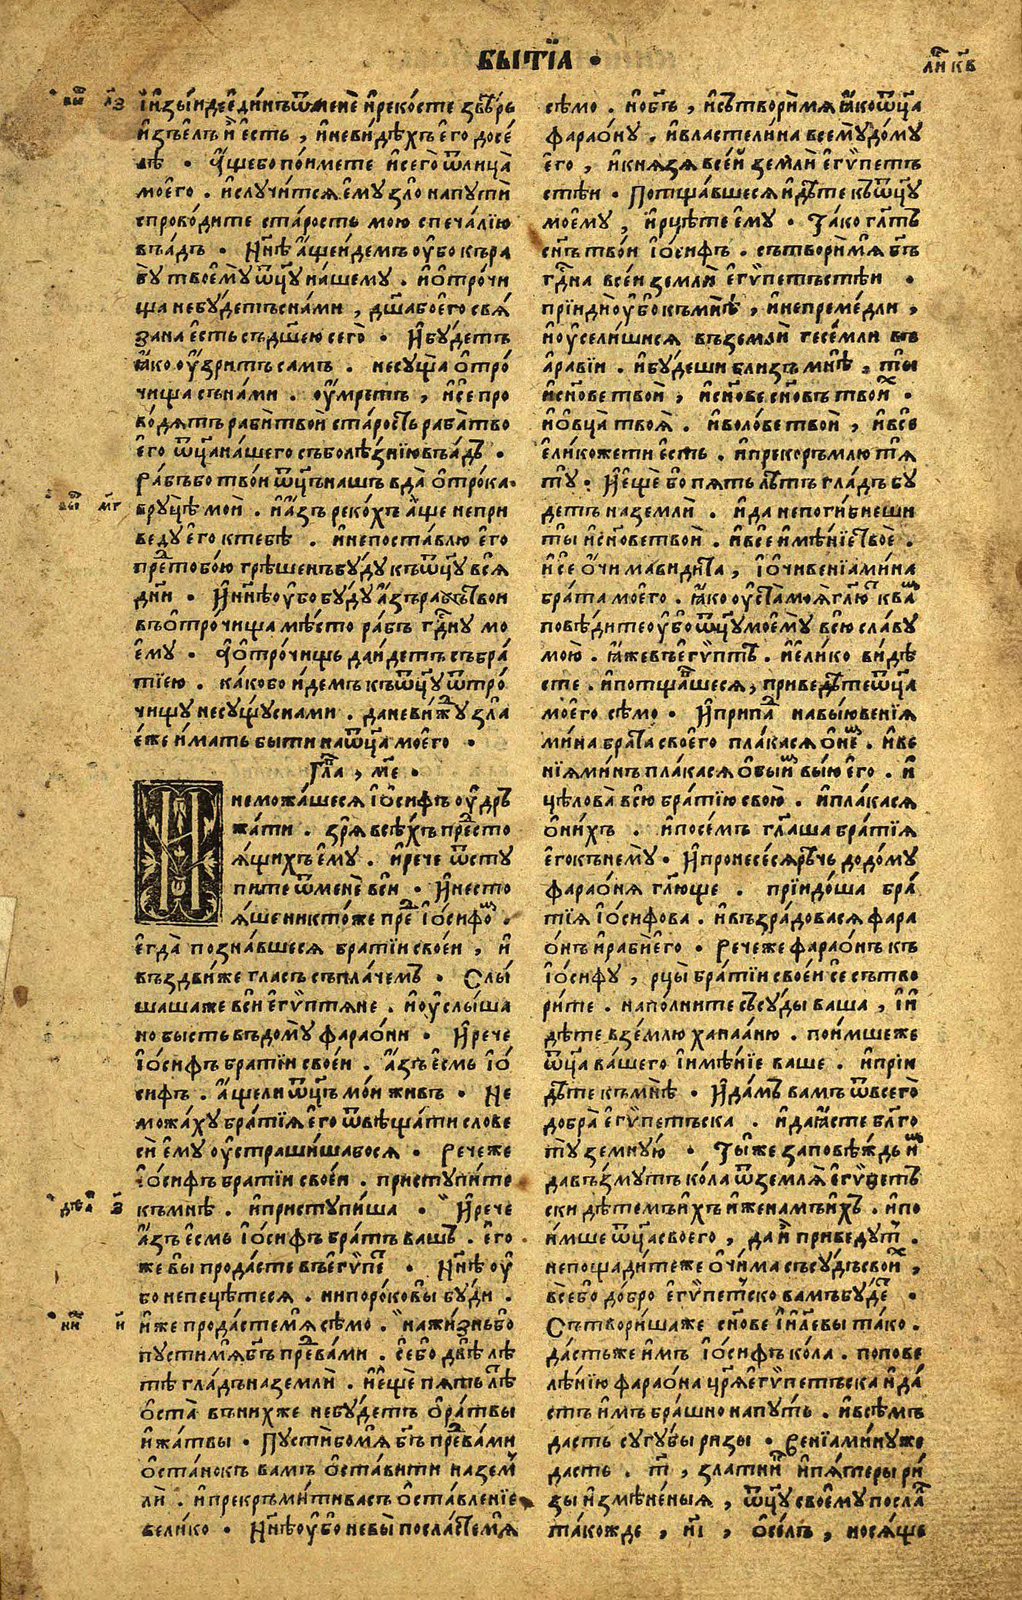 БЫТЇѦ ·
ли к҃в
вы л҃з
і҆зы́иде є҆ди́нъ ѿменѐ и҆реко́сте звѣ́рь
и҆зъе́лъ и҆ е҆сть , и҆неви́дѣхъ е҆го̀ досе́
лѣ · А҆́щебо по́имете и҆сего̀ ѿлица̀
моего̀ . и҆слꙋчи́тсѧ е҆мꙋ̀ зло̀ напꙋтѝ
спрово́дите ста́рость мою̀ спеча́лїю
въа́дъ · Н҃нѣ а҆́щеи́демъ ᲂу҆̀бо къра
бꙋ̀ твоемꙋ̀ ѿц҃ꙋ на́шемꙋ . и҆ѻ҆тро́чи
ща небꙋ́детъсна́ми , дш҃а боего̀ свѧ́
зана е҆́сть съдш҃ею сего̀ · И҆бꙋ́детъ
ꙗ҆́ко ᲂу҆́зритъ са́мъ . несꙋ́ща ѻ҆тро́
чища съна́ми . ᲂу҆́мретъ , и҆се про
во́дѧтъ рабѝтвоѝ ста́рость раба̀тво
его̀ ѿц҃а на́шего съболѣ́знїю въа́дъ .
Ра́бъбо тво́и ѿц҃ъ на́шъ вда̀ ѻ҆́трока ·
вы м҃г
врꙋ́цѣ моѝ . и҆а҆́зъ реко́хъ а҆́ще непри
ведꙋ̀ е҆го̀ ктебѣ̀ . и҆непоста́влю е҆го̀
прⷣетобо́ю грѣ́шенъ бꙋ́дꙋ къѿц҃ꙋ всѧ̀
дн҃и · И҆нн҃ѣ ᲂу҆̀бо бꙋ́дꙋ а҆́зъ ра́бъ твои
въѻ҆тро́чища мѣ́сто ра́бъ гдⷭ҇нꙋ мо
емꙋ̀ · А҆ѻ҆тро́чищь да и҆́детъ събра́
тїею . ка́кобо и҆́демъ къѿц҃ꙋ ѿтро́
чищꙋ несꙋ́щꙋ снами . даневи́жⷣꙋ зла
е҆́же и҆́мать бы́ти наѿц҃а моего̀ ·
Глⷡ҇а , м҃е ·
Немо́жашесѧ і҆ѡ́сифъ ᲂу҆держ
жа́ти . зрѧ̀ всѣ́хъ прⷣесто
ѧ́щихъ е҆мꙋ̀ . и҆рече ѿстꙋ
пи́те ѿменѐ всѝ · И҆несто
ѧ́ше никто́же прⷣе і҆ѡ́сифо .
е҆гда̀ позна́вшесѧ бра́тїи свое́и , и҆
въздви́же гла́съ съпла́чемъ · Слы́
шашаже всѝ е҆гѵ́птѧне . и҆ᲂу҆слы́ша
но бысть въдо́мꙋ фарао́ни · И҆рече
і҆ѡ́сифъ бра́тїи свое́и . а҆́зъ е҆́смь і҆ѡ́
сифъ . а҆́щели ѿц҃ъ мо́и жи́въ · Не
мо́жахꙋ бра́тїѧ е҆го̀ ѿвѣща́ти сло́ве
сѝ е҆мꙋ̀ ᲂу҆страши́шабосѧ · Рече́же
і҆ѡ́сифъ бра́тїи свое́и . пристꙋпи́те
дѣⷶ з҃
къмнѣ̀ . и҆пристꙋпи́ша · И҆рече
а҆́зъ е҆́смь і҆ѡ́сифъ бра́тъ ва́шъ . е҆го
же вы прода́сте въегѵ́пе · Нн҃ѣ ᲂу҆̀
бо непеце́тесѧ . нипоро́ковы бꙋ́ди .
н҃и
и҆́же прода́стемѧ сѣ́мо . нажи́зньбо
пꙋсти́мѧ бг҃ъ прⷣева́ми . се́бо двѣ̀ лѣ́
тѣ гла́дъ наземлѝ . и҆е҆ще́ пѧть лѣ́
ѻ҆ста̀ вни́хже небꙋ́детъ ѻ҆ра́твы
и҆жа́твы · Пꙋсти́бомѧ бг҃ъ прⷣева́ми
ѻ҆ста́нокъ ва́мъ ѻ҆ста́вити назем
лѝ . и҆прекръми́тивасъ ѻ҆ставле́нїе
вели́ко · Нн҃ѣ ᲂу҆̀бо невы̀ посла́стемѧ
сѣ́мо . но бг҃ъ , и҆сътвори́мѧ ꙗ҆́коѿц҃а
фарао́нꙋ . и҆власте́лина всемꙋ̀ до́мꙋ
е҆го̀ , и҆кнѧ́зѧ все́й землѝ е҆гѵ́петъ
стѣ́и · Потща́вшесѧ и҆дѣ́те къѿц҃ꙋ
моемꙋ̀ , и҆рцѣ́те е҆мꙋ̀ · Та́ко гл҃етъ
сн҃ъ тво́и і҆ѡ́сифъ . сътвори́мѧ бг҃ъ
гдⷭ҇на все́и землѝ е҆гѵ́петъстѣи ·
прїидѝ ᲂу҆̀бо къмнѣ̀ , и҆непреме́дли ,
и҆ᲂу҆селишисѧ въземлѝ гесе́мли въ
ара́вїи . и҆бꙋ́деши бли́зъ мнѣ̀ , ты̀
и҆сн҃ове твоѝ , и҆сн҃ове сн҃овъ твои́ ·
и҆ѻ҆вца̀ твоѧ̀ . и҆воло́ве твоѝ , и҆все
е҆ли́кожети е҆́сть . и҆прекръмлю́ тѧ
тꙋ̀ · И҆е҆ще́ бо пѧть лѣ́тъ гла́дъ бꙋ
детъ на землѝ . и҆ да непоги́бнеши
ты̀ и҆сн҃ове твоѝ . и҆всѐ и҆мѣ́нїе твоѐ .
и҆сѐ ѻ҆́чи ма видита , і҆ѻ҆́чи венїами́на
бра́та моего̀ . ꙗ҆́ко ᲂу҆ста̀ моѧ̀ гл҃ю кваⷨ
повѣ́дите ᲂу҆̀бо ѿц҃ꙋ моемꙋ̀ всю̀ сла́вꙋ
мою̀ . ꙗ҆́же въегѵ́птѣ . и҆е҆ли́ко видѣ́
сте . и҆потща́вшесѧ , приведѣ́те ѿц҃а
моего̀ сѣ́мо · И҆припаⷣ навы́ю венїѧ
мина бра́та своего̀ пла́касѧ ѻ҆не́ . и҆ве
нїѧми́нъ пла́касѧ ѻ҆вы́и вы́ю е҆го̀ . и҆
цѣлова̀ всю̀ бра́тїю свою̀ . и҆пла́касѧ
ѻ҆ни́хъ . и҆посе́мъ гл҃аша бра́тїѧ
е҆го къне́мꙋ · И҆пронесе́сѧ рѣ́чь до до́мꙋ
фарао́нѧ гл҃юще . прїидо́ша бра́
тїѧ і҆ѡ́сифова . и҆възра́довасѧ фара
ѡ́нъ и҆рабѝ е҆го̀ · Рече́же фарао́нъ къ
і҆ѡ́сифꙋ , рцы̀ бра́тїи свое́и сѐ сътво
ри́те . напо́лните съсꙋ́ды ва́ша , і҆и
дѣ́те взе́млю ханаа́ню . пои́мшеже
ѿц҃а ва́шего і҆имѣ́нїе ваше . и҆прїи
дѣ́те къмнѣ̀ · И҆да́мъ ва́мъ ѿвсего̀
добра̀ е҆гѵ́петъска . и҆да ꙗ҆́сте бл҃го
тꙋ̀ земнꙋ́ю · Ты́же заповѣ́ждь и҆мⷨ
давъзмꙋ́тъ кола̀ ѿземлѧ̀ е҆гѵ́петъ
ски дѣ́темъ и҆́хъ и҆жена́мъ и҆́хъ . и҆по
и҆мше ѿц҃асвоего , да и҆̀ приведꙋ́т .
непощади́теже ѻ҆чи́ма съсꙋ́дъ свои́ ,
все́бо добро̀ е҆гѵ́петско ва́мъбꙋ́де ·
Сътвори́шаже сн҃ове і҆и҃левы та́ко .
да́стьже и҆́мъ і҆ѡ́сифъ кола̀ . попове
лѣ́нїю фарао́на цр҃ѧ е҆гѵ́петъска и҆да
стъ и҆́мъ бра́шно напꙋ́ть . и҆всѣ́мъ
дасть сꙋгꙋ́бы ри́зы · Венїами́нꙋже
дасть . т҃ , злати́и и҆пѧ́теры ри́
зы и҆змѣне́ныѧ , ѿц҃ꙋ своемꙋ̀ посла̀
та́кожде , і҃ , ѻ҆се́лъ , носѧ́ще